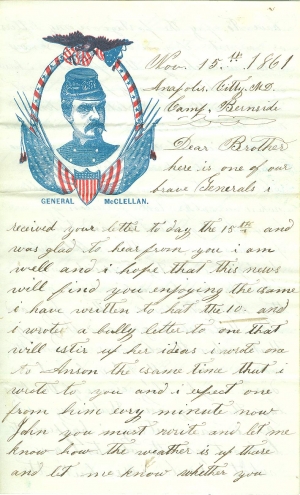 Nov. 15.th 1861
Anapolis. City. M.D.
Camp. Burnside
Dear Brother
here is one of our
brave Generals i
GENERAL McCLELLAN.
received your letter to day the 15th and
was glad to hear from you i am
well and i hope that this news
will find you enjoying the same
i have written to hat the 10- and
i wroter a bully letter to one that
will stir up her ideas i wrote one
to Anson the same time that i
wrote to you and i expect one
from him evry minute now
John you must write and let me
know how the weather is up there
and let me know whether you